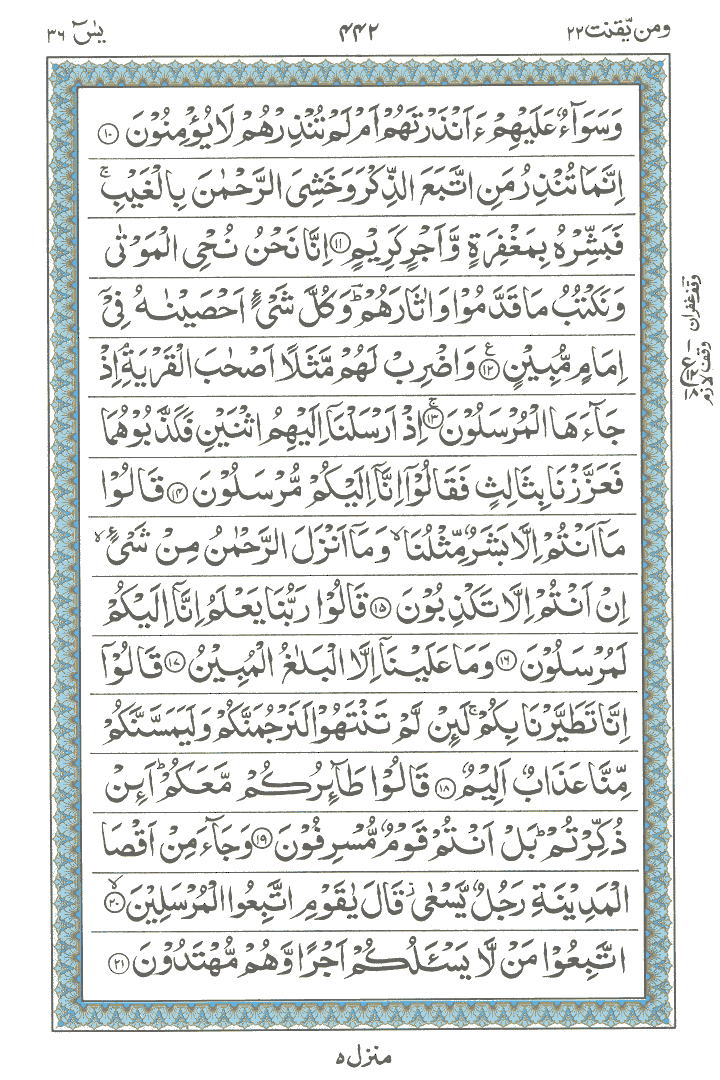 ومن یّقنت ۲۲
۴۴۲
یٰسٓ ۳۶
وَسَوَآءٌ عَلَيْهِمْ ءَاَنْذَرْتَهُمْ اَمْ لَمْ تُنْذِرْهُمْ لَا يُؤْمِنُوْنَ ﴿۱۰﴾
اِنَّمَا تُنْذِرُ مَنِ اتَّبَعَ الذِّكْرَ وَخَشِیَ الرَّحْمٰنَ بِالْغَيْبِ ۚ
فَبَشِّرْهُ بِمَغْفِرَةٍ وَّاَجْرٍ كَرِيْمٍ ﴿۱۱﴾ اِنَّا نَحْنُ نُحْیِ الْمَوْتٰی
وَنَكْتُبُ مَا قَدَّمُوْا وَاٰثَارَهُمْ ؕ وَكُلَّ شَیْءٍ اَحْصَيْنٰهُ فِیْۤ
اِمَامٍ مُّبِيْنٍ ﴿۱۲﴾ ع وَاضْرِبْ لَهُمْ مَّثَلًا اَصْحٰبَ الْقَرْيَةِ ۘ اِذْ
جَآءَهَا الْمُرْسَلُوْنَ ﴿۱۳﴾ ۚ اِذْ اَرْسَلْنَاۤ اِلَيْهِمُ اثْنَيْنِ فَكَذَّبُوْهُمَا
فَعَزَّزْنَا بِثَالِثٍ فَقَالُوْۤا اِنَّاۤ اِلَيْكُمْ مُّرْسَلُوْنَ ﴿۱۴﴾ قَالُوْا
مَاۤ اَنْتُمْ اِلَّا بَشَرٌ مِّثْلُنَا ۙ وَمَاۤ اَنْزَلَ الرَّحْمٰنُ مِنْ شَیْءٍ ۙ
اِنْ اَنْتُمْ اِلَّا تَكْذِبُوْنَ ﴿۱۵﴾ قَالُوْا رَبُّنَا يَعْلَمُ اِنَّاۤ اِلَيْكُمْ
لَمُرْسَلُوْنَ ﴿۱۶﴾ وَمَا عَلَيْنَاۤ اِلَّا الْبَلٰغُ الْمُبِيْنُ ﴿۱۷﴾ قَالُوْۤا
اِنَّا تَطَيَّرْنَا بِكُمْ ۚ لَئِنْ لَّمْ تَنْتَهُوْا لَنَرْجُمَنَّكُمْ وَلَيَمَسَّنَّكُمْ
مِّنَّا عَذَابٌ اَلِيْمٌ ﴿۱۸﴾ قَالُوْا طَآئِرُكُمْ مَّعَكُمْ ؕ اَئِنْ
ذُكِّرْتُمْ ؕ بَلْ اَنْتُمْ قَوْمٌ مُّسْرِفُوْنَ ﴿۱۹﴾ وَجَآءَ مِنْ اَقْصَا
الْمَدِيْنَةِ رَجُلٌ يَّسْعٰی ؗ قَالَ يٰقَوْمِ اتَّبِعُوا الْمُرْسَلِيْنَ ﴿۲۰﴾ ۙ
اتَّبِعُوْا مَنْ لَّا يَسْـَٔلُكُمْ اَجْرًا وَّهُمْ مُّهْتَدُوْنَ ﴿۲۱﴾
وقف غفران
وقف لازم
منزل ۵